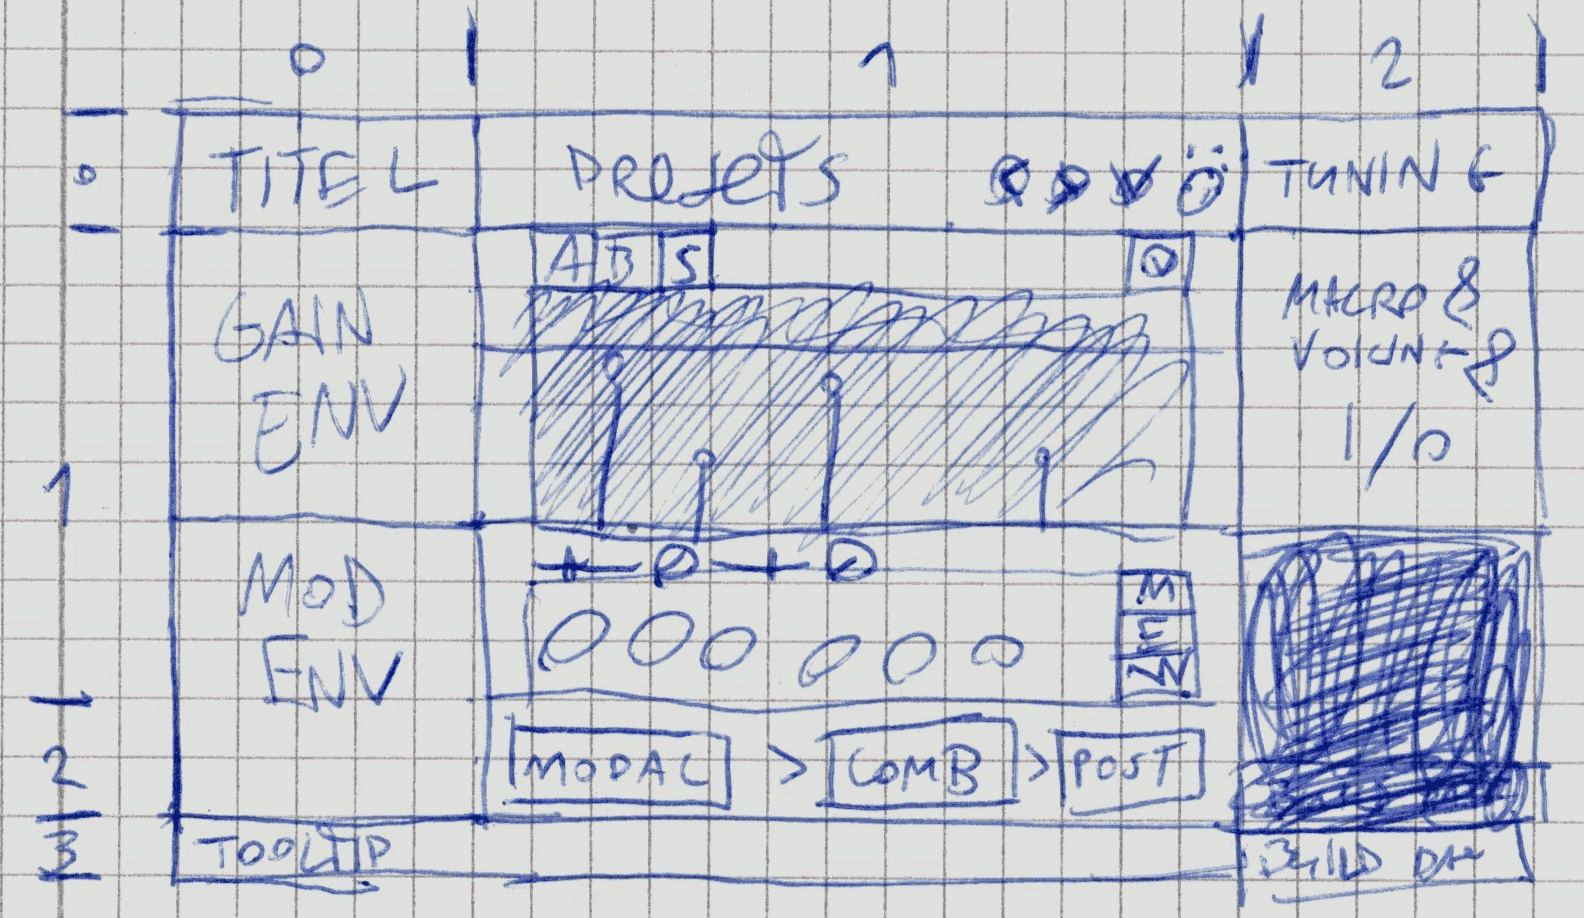 0 1 2
0
TITEL
PRESETS
TUNING
A B S
GAIN
ENV
MACRO &
VOLUME &
I/O
1
MOD
ENV
M
E
MODAL > COMB > POST
2
3
TOOLTIP
BUILD